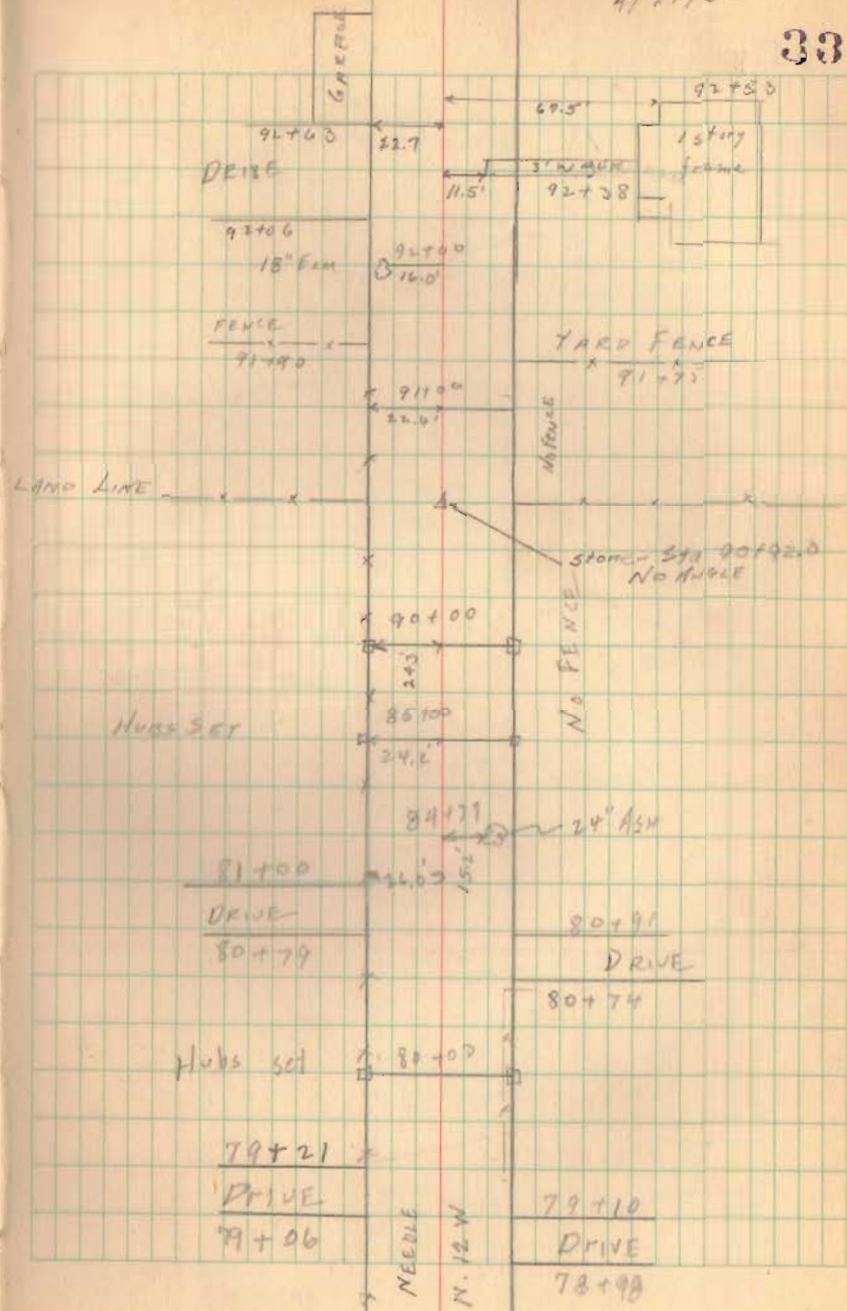 33
GARAGE
92+53
67.5'
92+63
22.7
1 story
frame
DRIVE
3' WALK
11.5'
92+38
92+06
18" Elm
92+00
16.0'
FENCE
91+90
YARD FENCE
91+75
91+00
22.4'
NO FENCE
LAND LINE
Stone - Sta 90+92.0
NO ANGLE
90+00
24.3'
NO FENCE
HUBS SET
85+00
24.2'
84+77
24" ASH
15.2'
81+00
26.0'
DRIVE
80+79
80+91
DRIVE
80+74
Hubs set
80+00
79+21
DRIVE
79+06
NEEDLE
N. 12 W
79+10
DRIVE
78+98